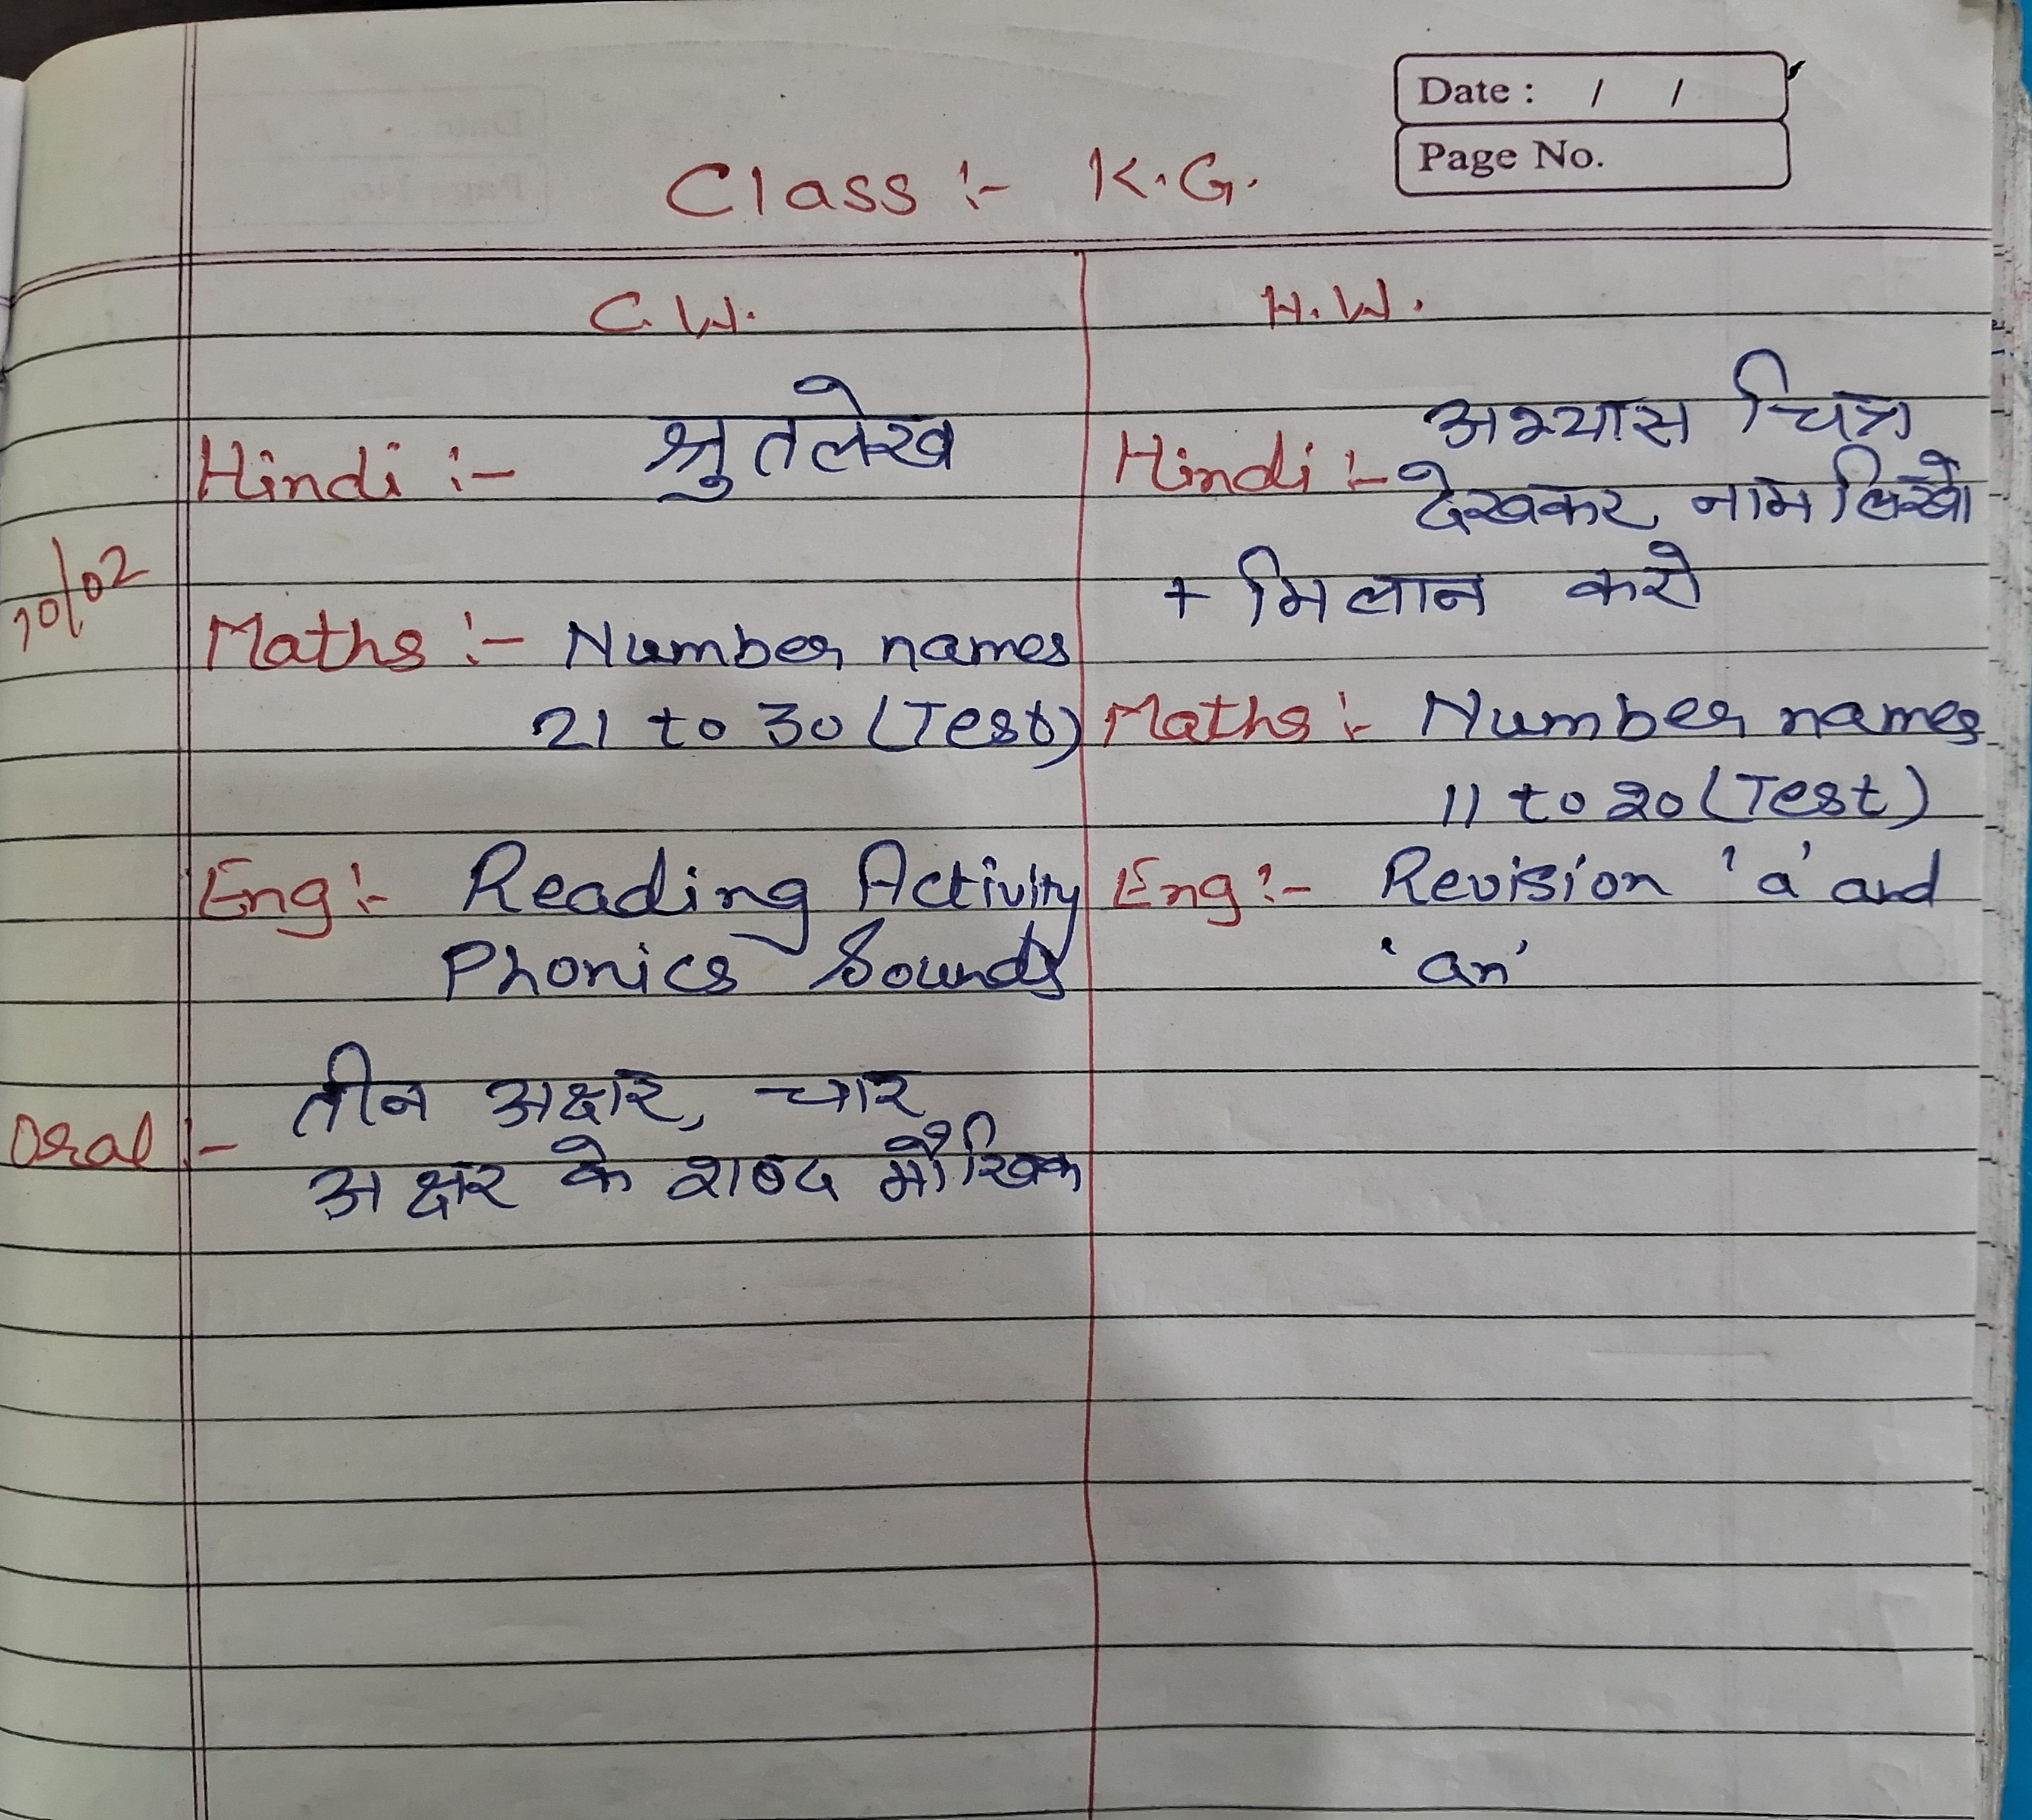 Date : / /
Page No.
Class :- K.G.
C.W.
Hindi :- श्रुतलेख
10/02
Maths :- Number names
21 to 30 (Test)
Eng :- Reading Activity
Phonics Sounds
Oral :- तीन अक्षर, चार
अक्षर के शब्द मौखिक
H.W.
Hindi :- अभ्यास चित्र
देखकर नाम लिखो
+ मिलान करो
Maths :- Number names
11 to 20 (Test)
Eng :- Revision 'a' and
'an'